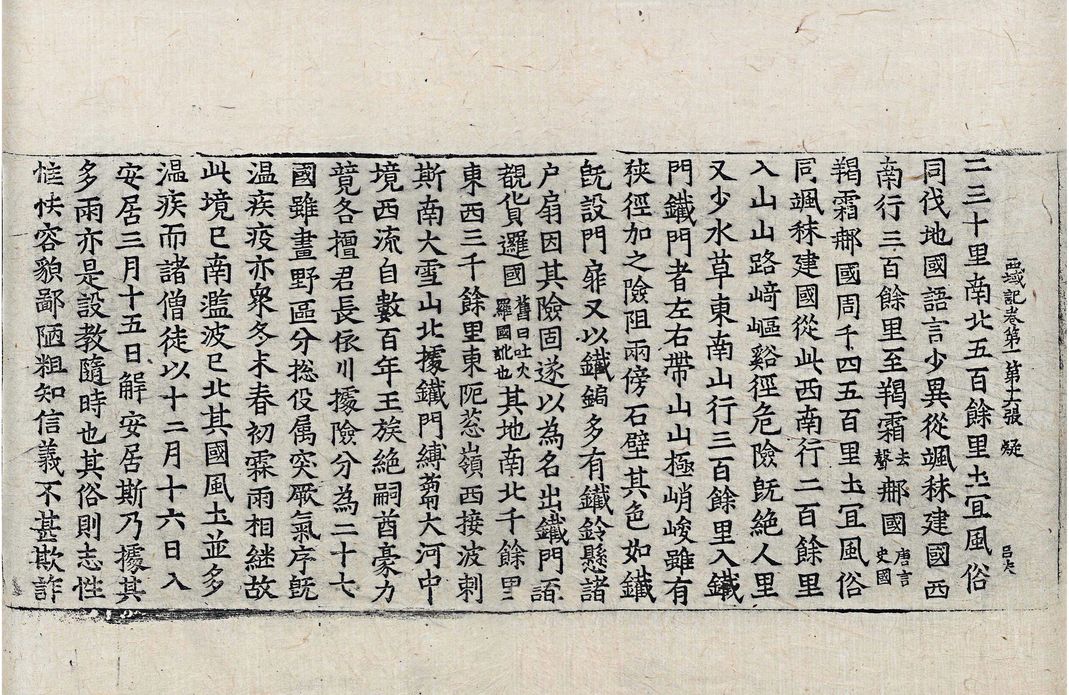 西域記卷第一 第十六張 疑 呂夫
二三十里南北五百餘里𡈽冝風俗
同伐地國語言少異從颯秣建國西
南行三百餘里至羯霜去聲𨚗國唐言史國
羯霜𨚗國周千四五百里𡈽冝風俗
同颯秣建國從此西南行二百餘里
入山山路﨑嶇谿徑危險旣絶人里
又少水草東南山行三百餘里入鐵
門鐵門者左右帶山山極峭峻雖有
狹徑加之險阻兩傍石壁其色如鐵
旣設門扉又以鐵鎢多有鐵鈴懸諸
户扇因其險固遂以為名出鐵門諸
覩貨邏國舊曰吐火羅國訛也其地南北千餘里
東西三千餘里東阨葱嶺西接波剌
斯南大雪山北據鐵門縛蒭大河中
境西流自數百年王族絶嗣酋豪力
競各擅君長依川據險分為二十七
國雖畫野區分揔役属突厥氣序旣
温疾疫亦衆冬末春初霖雨相継故
此境已南濫波已北其國風𡈽並多
温疾而諸僧徒以十二月十六日入
安居三月十五日解安居斯乃據其
多雨亦是設教隨時也其俗則志性
恇怯容貌鄙陋粗知信義不甚欺詐